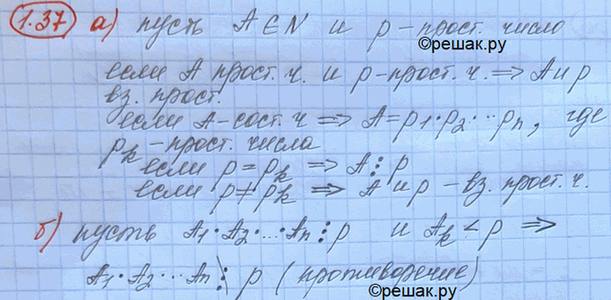 1.37 а) пусть A∈N и p - прост. число
©решак.ру
если A прост. ч. и p - прост. ч. ⇒ A и p
вз. прост.
если A - сост. ч ⇒ A = p₁·p₂·…pₙ, где
pₖ - прост. числа
если p = pₖ ⇒ A⋮p
если p ≠ pₖ ⇒ A и p - вз. прост. ч.
б) пусть A₁·A₂·…·Aₙ⋮p и Aₖ < p ⇒
A₁·A₂·…Aₙ⋮̸ p (противоречие)
©решак.ру